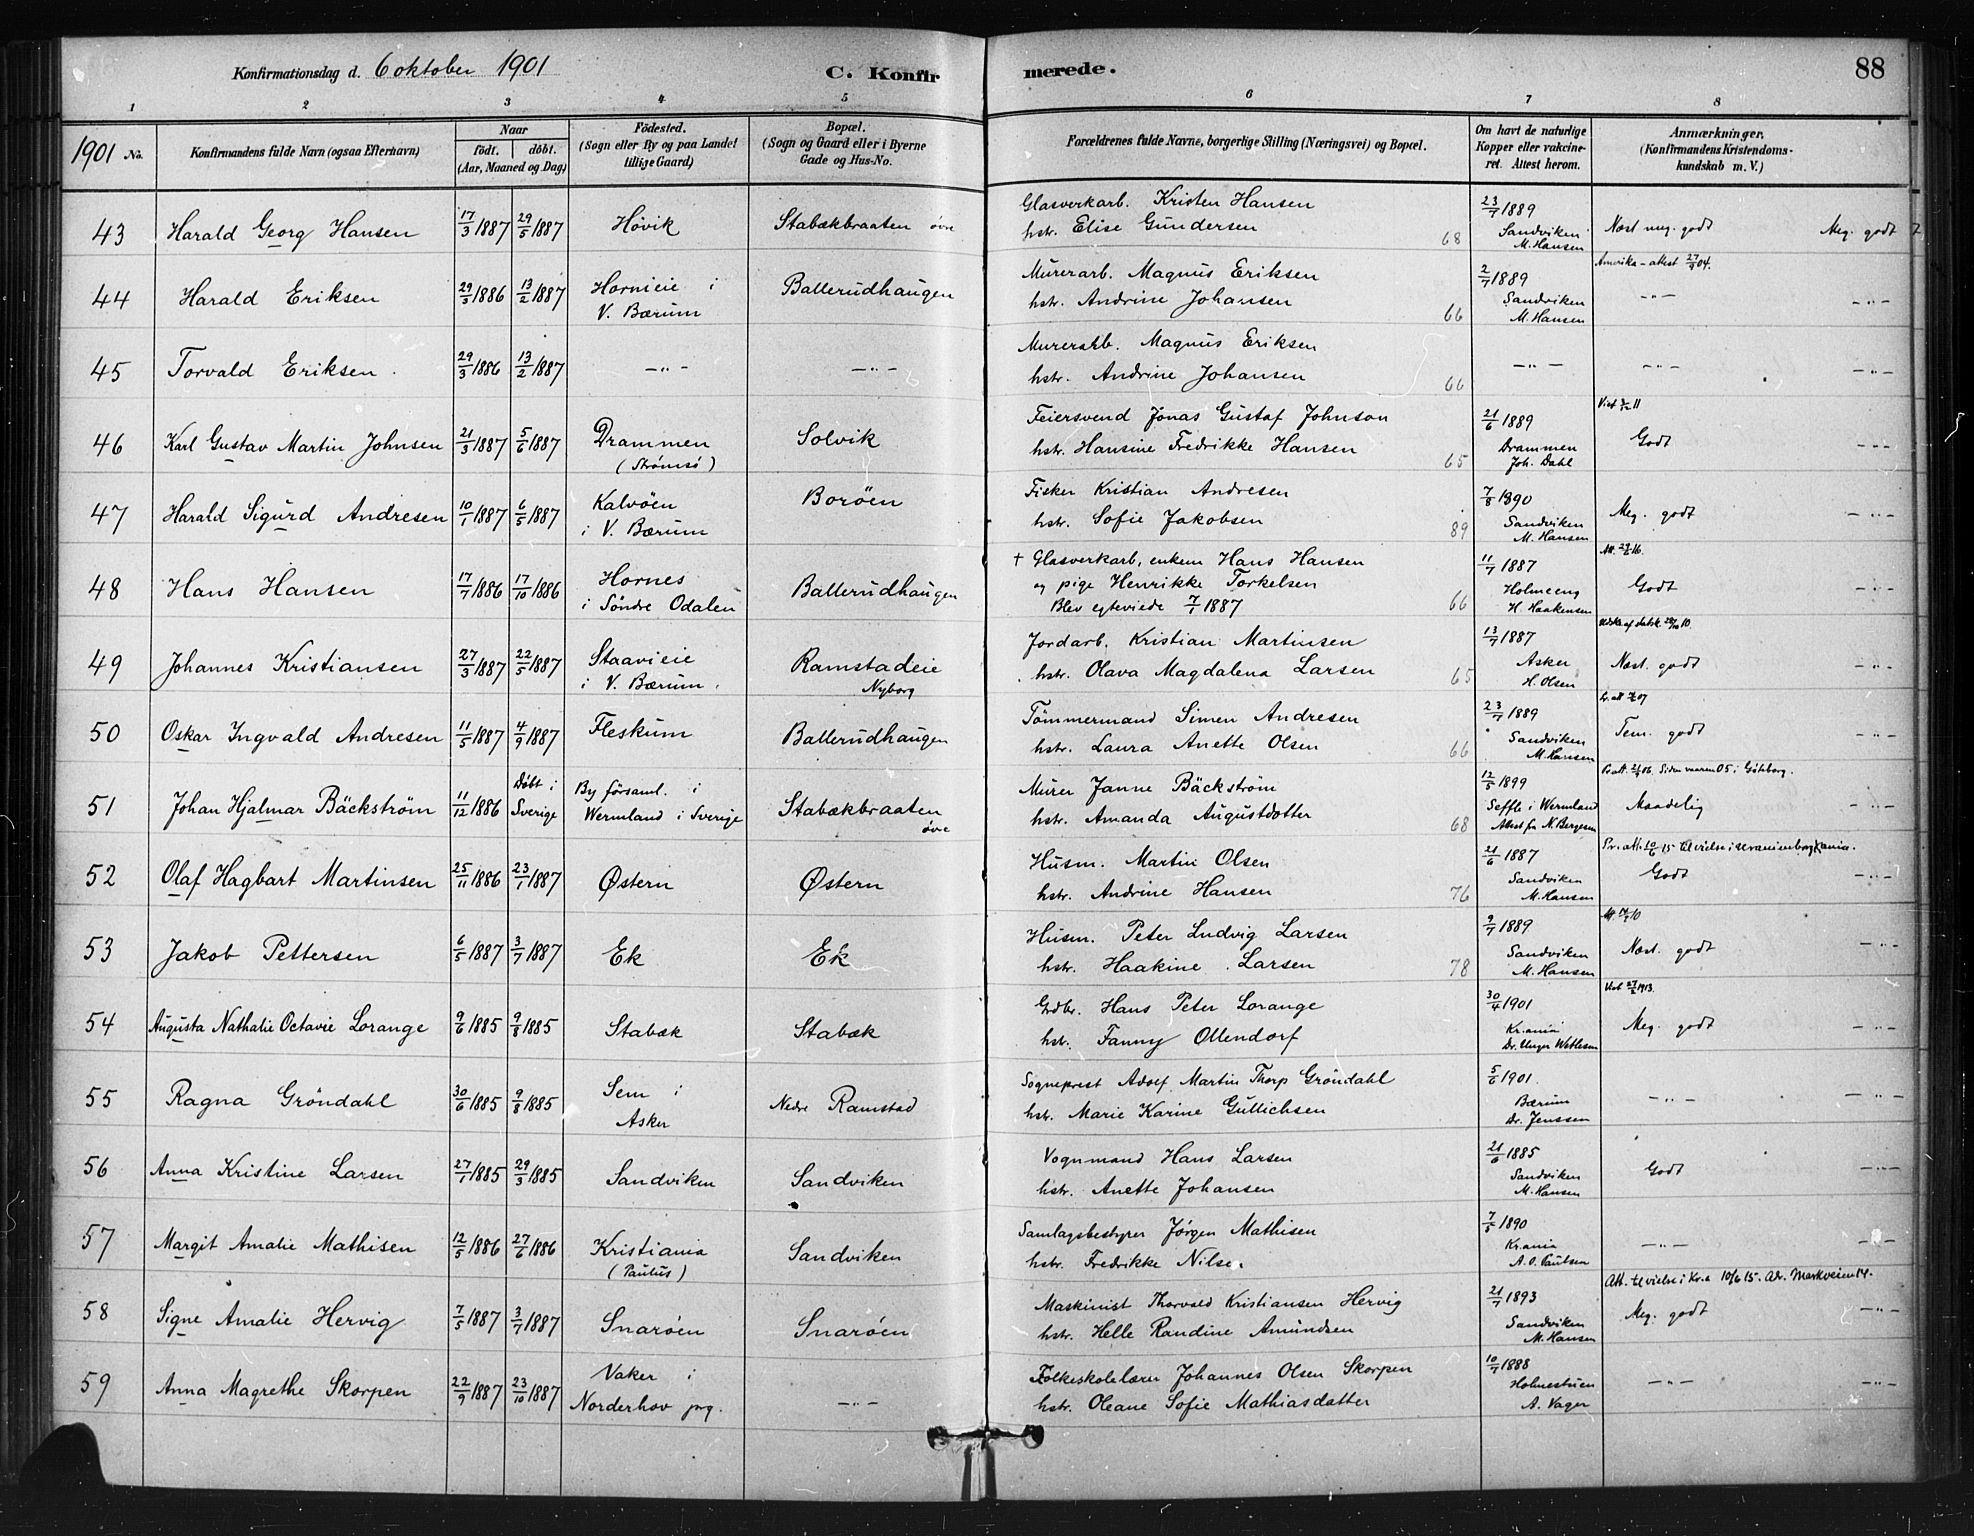 Konfirmationsdag d. 6 oktober 1901 C. Konfir merede. 88
1 2 3 4 5 6 7 8
1901 No. Konfirmandens fulde Navn (ogsaa Efternavn) Naar födt. döbt. (Aar, Maaned og Dag) Födested. (Sogn eller By og paa Landet tillige Gaard) Bopæl. (Sogn og Gaard eller i Byerne Gade og Hus-No. Forældrenes fulde Navne, borgerlige Stilling (Næringsvei) og Bopæl. Om havt de naturlige Kopper eller vakcineret. Attest herom. Anmærkninger. (Konfirmandens Kristendomskundskab m. V.)
43 Harald Georg Hansen 17/3 1887 29/5 1887 Høvik Stabækbraaten øvre
Glasverkarb. Kristen Hansen
hstr. Elise Gundersen 68
23/7 1889
Sandviken
M. Hansen
Næst meg. godt Meg. godt
44 Harald Eriksen 29/3 1886 13/2 1887 Hornieie i
V. Bærum
Ballerudhaugen
Murerarb. Magnus Eriksen
hstr. Andrine Johansen 66
2/7 1889
Sandviken
M. Hansen
Amerika-attest 27/9 04.
-"- -"-
45 Torvald Eriksen 29/3 1886 13/2 1887 -"- -"-
Murerarb. Magnus Eriksen
hstr. Andrine Johansen 66
-"- -"- -"-
46 Karl Gustav Martin Johnsen 21/3 1887 5/6 1887 Drammen
(Strømsø)
Solvik
Feiersvend Jonas Gustaf Johnson
hstr. Hansine Fredrikke Hansen 65
21/6 1889
Drammen
Joh. Dahl
Godt -"-
47 Harald Sigurd Andresen 10/1 1887 6/5 1887 Kalvöen
i V. Bærum
Boröen
Fisker Kristian Andresen
hstr. Sofie Jakobsen 89
7/8 1890
Sandviken
M. Hansen
Meg. godt -"-
48 Hans Hansen 17/7 1886 17/10 1886 Hornes
i Söndre Odalen
Ballerudhaugen
+ Glasverkarb, enkem Hans Hansen
og pige Henrikke Torkelsen
Blev egteviede 7/1 1887 66
11/7 1887
Holmeeng
H. Haakensen
Godt -"-
49 Johannes Kristiansen 27/3 1887 22/5 1887 Staavieie
i V. Bærum
Ramstadeie
Nyborg
Jordarb. Kristian Martinsen
hstr. Olava Magdalena Larsen 65
13/7 1887
Asker
H. Olsen
Næst. godt -"-
50 Oskar Ingvald Andresen 11/5 1887 4/9 1887 Fleskum Ballerudhaugen
Tömmermand Simen Andresen
hstr. Laura Anette Olsen 66
23/7 1889
Sandviken
M. Hansen
Tem. godt -"-
51 Johan Hjalmar Bäckström 11/12 1886 Döbt i
Sverige
By församl. i
Wermland i Sverige
Stabækbraaten
øvre
Murer Janne Bäckström
hstr. Amanda Augustdotter 68
12/5 1899
Seffle i Wermland
Attest fra N. Bergesen
Siden vaaren 05 i Göteborg.
Maadelig -"-
52 Olaf Hagbart Martinsen 25/11 1886 23/1 1887 Østern Østern
Husm. Martin Olsen
hstr. Andrine Hansen 76
21/6 1887
Sandviken
M. Hansen
Godt -"-
53 Jakob Pettersen 6/5 1887 3/7 1887 Ek Ek
Husm. Peter Ludvig Larsen
hstr. Haakine Larsen 78
9/7 1889
Sandviken
M. Hansen
Næst. godt -"-
54 Augusta Nathalie Octavie Lorange 9/6 1885 9/8 1885 Stabæk Stabæk
Grdbr. Hans Peter Lorange
hstr. Fanny Ollendorf
30/4 1901
Kr.ania
Dr. Unger Wetlesen
Meg. godt -"-
55 Ragna Gröndahl 30/6 1885 9/8 1885 Sem i
Asker
Nedre Ramstad
Sogneprest Adolf Martin Thorp Gröndahl
hstr. Marie Karine Gullichsen
5/6 1901.
Bærum
Dr. Jenssen
-"- -"-
56 Anna Kristine Larsen 27/1 1885 29/3 1885 Sandviken Sandviken
Vognmand Hans Larsen
hstr. Anette Johansen
21/6 1885
Sandviken
M. Hansen
Godt -"-
57 Margit Amalie Mathisen 12/5 1886 27/6 1886 Kristiania
(Paulus)
Sandviken
Samlagsbestyrer Jörgen Mathisen
hstr. Fredrikke Nilsen
7/5 1890
Kr.ania
A. O. Paulsen
-"- -"-
58 Signe Amalie Hervig 7/5 1887 3/7 1887 Snaröen Snaröen
Maskinist Thorvald Kristiansen Hervig
hstr. Helle Randine Amundsen
21/7 1893
Sandviken
M. Hansen
Att. til vielse i Kr.a 10/6 15. Adr. Markveien 14.
Meg. godt -"-
59 Anna Magrethe Skorpen 22/9 1887 23/10 1887 Vaker i
Norderhov prg.
-"-
Folkeskolelærer Johannes Olsen Skorpen
hstr. Oleane Sofie Mathiasdatter
10/7 1888
Holmestuen
A. Vager
-"- -"-